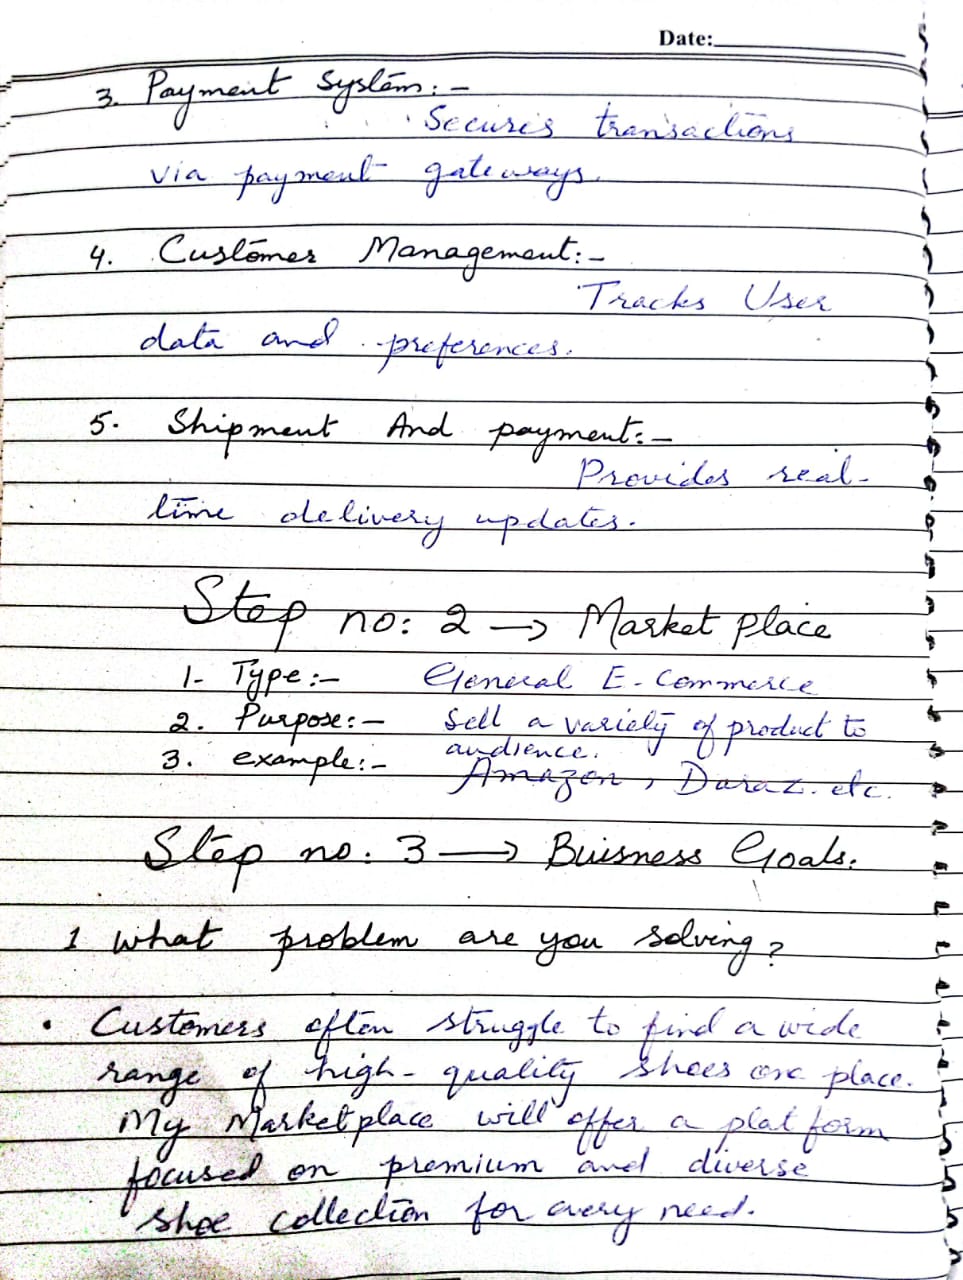 Date:
3. Payment System:-
Secures transactions
via payment gateways.
4. Customer Management:-
Tracks User
data and preferences.
5. Shipment And payment:-
Provides real-
time delivery updates.
Step no: 2 → Market place
1- Type:- General E-Commerce
2. Purpose:- Sell a variety of product to
audience.
3. example:- Amazon, Daraz. etc.
Step no: 3 → Buisness Goals:
1 What problem are you solving?
• Customers often struggle to find a wide
range of high-quality shoes one place.
My Marketplace will offer a platform
focused on premium and diverse
shoe collection for every need.